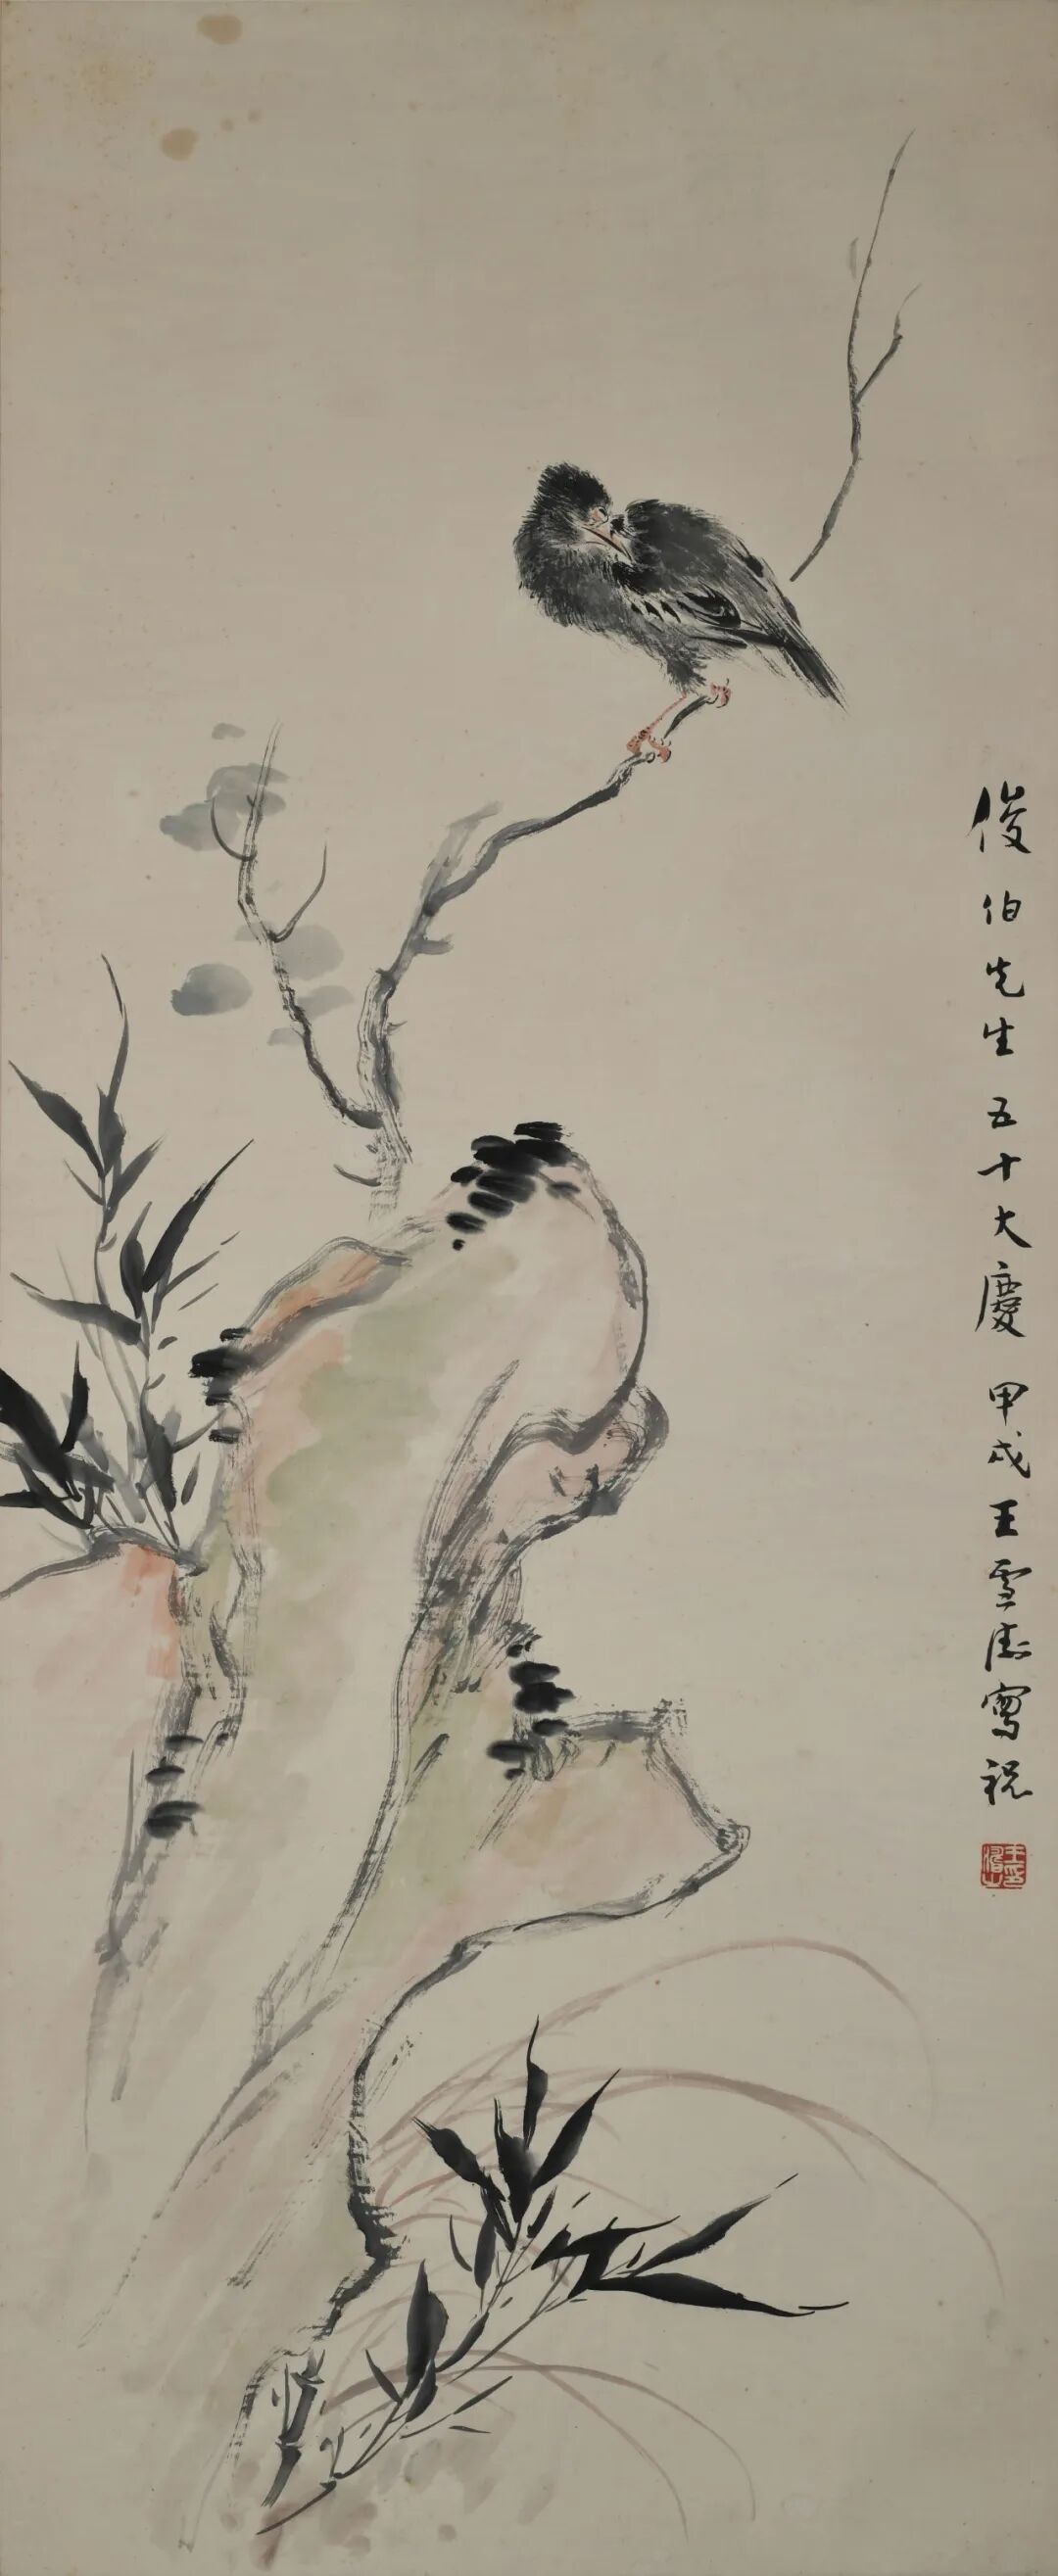 俊伯先生五十大慶 甲戌王雪濤寫祝